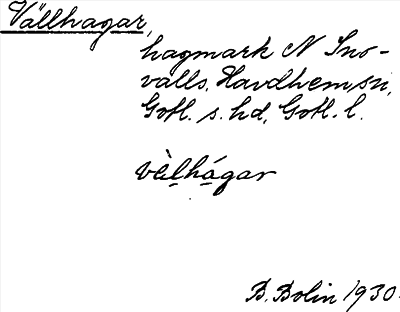 Vällhagar,
hagmark N Sno-
valls, Havdhem sn,
Gotl. s. hd, Gotl. l.
vèlhágar
B. Bolin 1930.